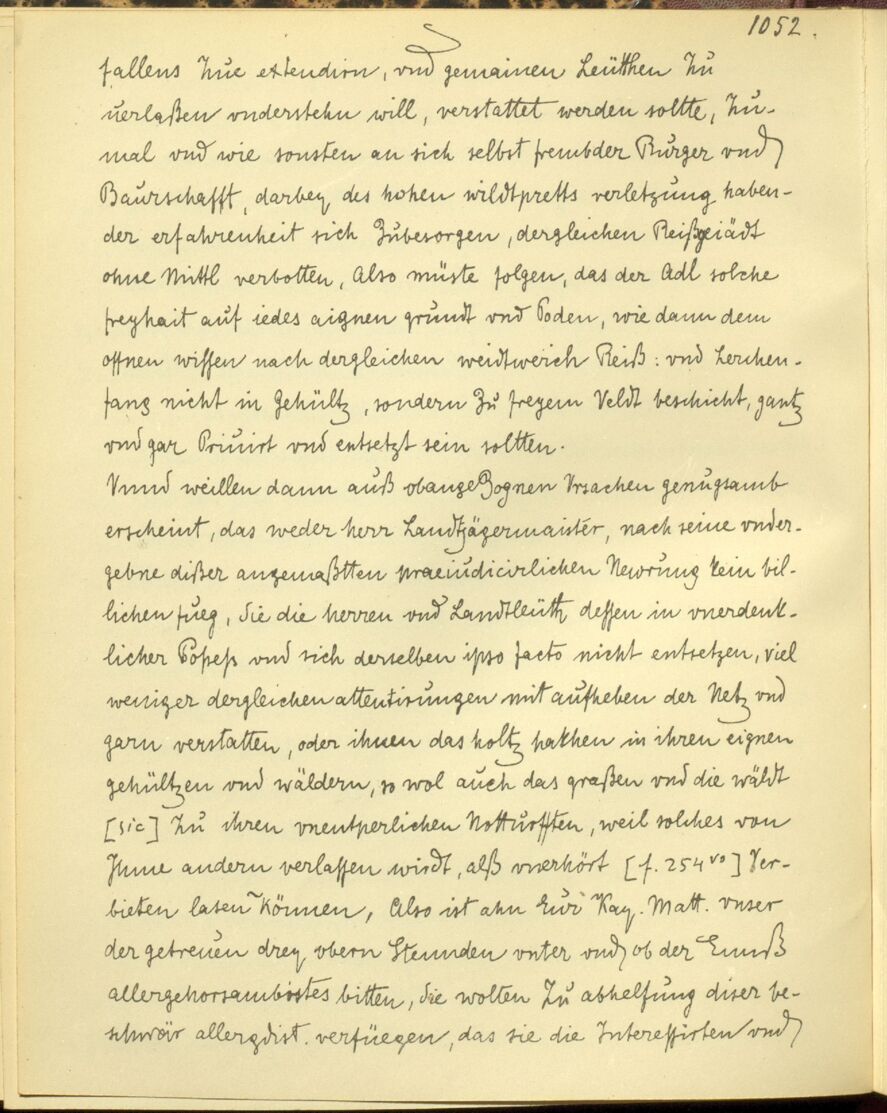 1052.
fallens Zue extendirn, vnd gemainen Leütthen Zu
uerlaßen vnderstehn will, verstattet werden sollte, Zu-
mal vnd wie sonsten an sich selbst frembder Burger vnd
Baurschafft, darbey des hohen wildtpretts verletzung haben-
der erfahrenheit sich Zubesorgen, dergleichen Reißgeiädt
ohne Mittl verbotten, Also müste folgen, das der Adl solche
freyhait auf iedes aignen grundt vnd Poden, wie dann dem
offnen wissen nach dergleichen weidtwerich Reiß: vnd Lerchen-
fang nicht in Gehültz, sondern Zu freyem Veldt beschicht, gantz
vnd gar Priuirt vnd entsetzt sein sollten.
Vnnd weillen dann auß obangeZognen Vrsachen genugsamb
erscheint, das weder herr Landtjägermaister, nach seine vnder-
gebne dißer angemaßtten praeiudicirlichen Newrung kein bil-
lichen fueg, Sie die herren vnd Landtleüth dessen in vnerdenk-
licher Poßeß vnd sich derselben ipso facto nicht entsetzen, viel
weniger dergleichen attentirungen mit aufheben der Netz vnd
garn verstatten, oder ihnen das holtz hakhen in ihren eignen
gehültzen vnd wäldern, so wol auch das graßen vnd die wäldt
[sic] Zu ihren vnentperlichen Notturfften, weil solches von
Ihme andern verlassen wirdt, alß vnerhört [f. 254 vo] Ver-
bieten lasen können, Also ist ahn Eur Kay. Matt. vnser
der getreuen drey obern Stennden vnter vnd ob der Ennß
allergehorsambistes bitten, Sie wolten Zu abhelfung diser be-
schwär allergdist. verfüegen, das sie die Interessirten vnd